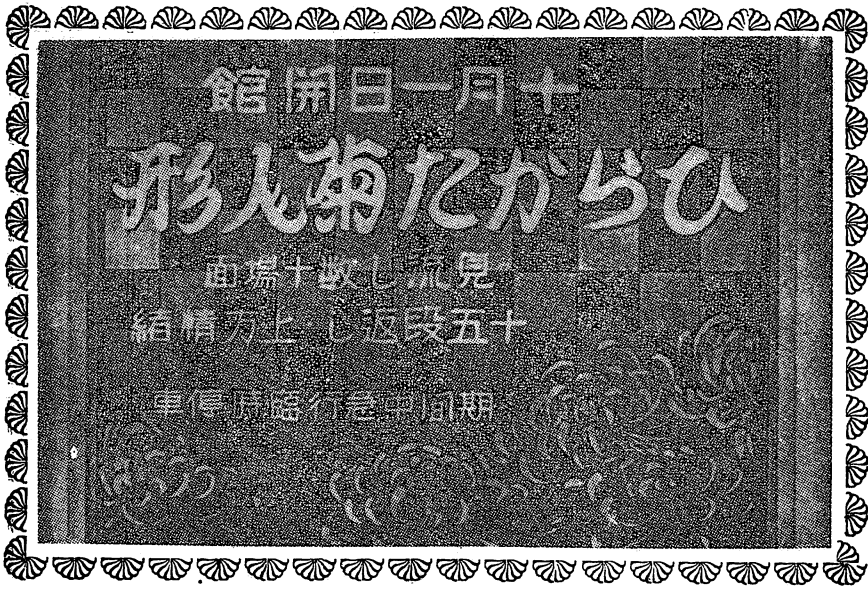 十月一日開館
ひらかた菊人形
見流し数十場面
十五段返し・上方情緒
期間中急行臨時停車